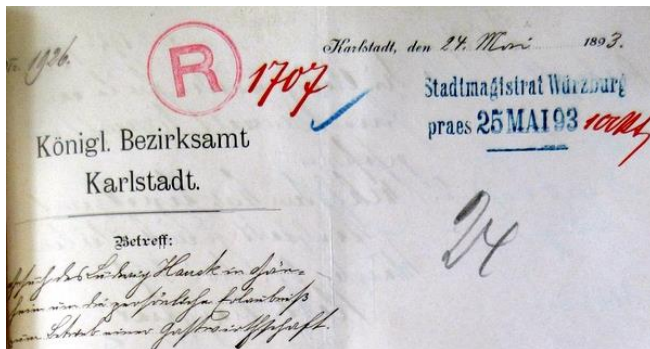 No. 1926.
R
1707
Karlstadt, den 24. Mai 1893.
Stadtmagistrat Würzburg
praes 25 MAI 93
Königl. Bezirksamt
Karlstadt.
24
Betreff:
Gesuch des Ludwig Hauck in Gän-
heim um die persönliche Erlaubniß
zum Betrieb einer Gastwirthschaft.